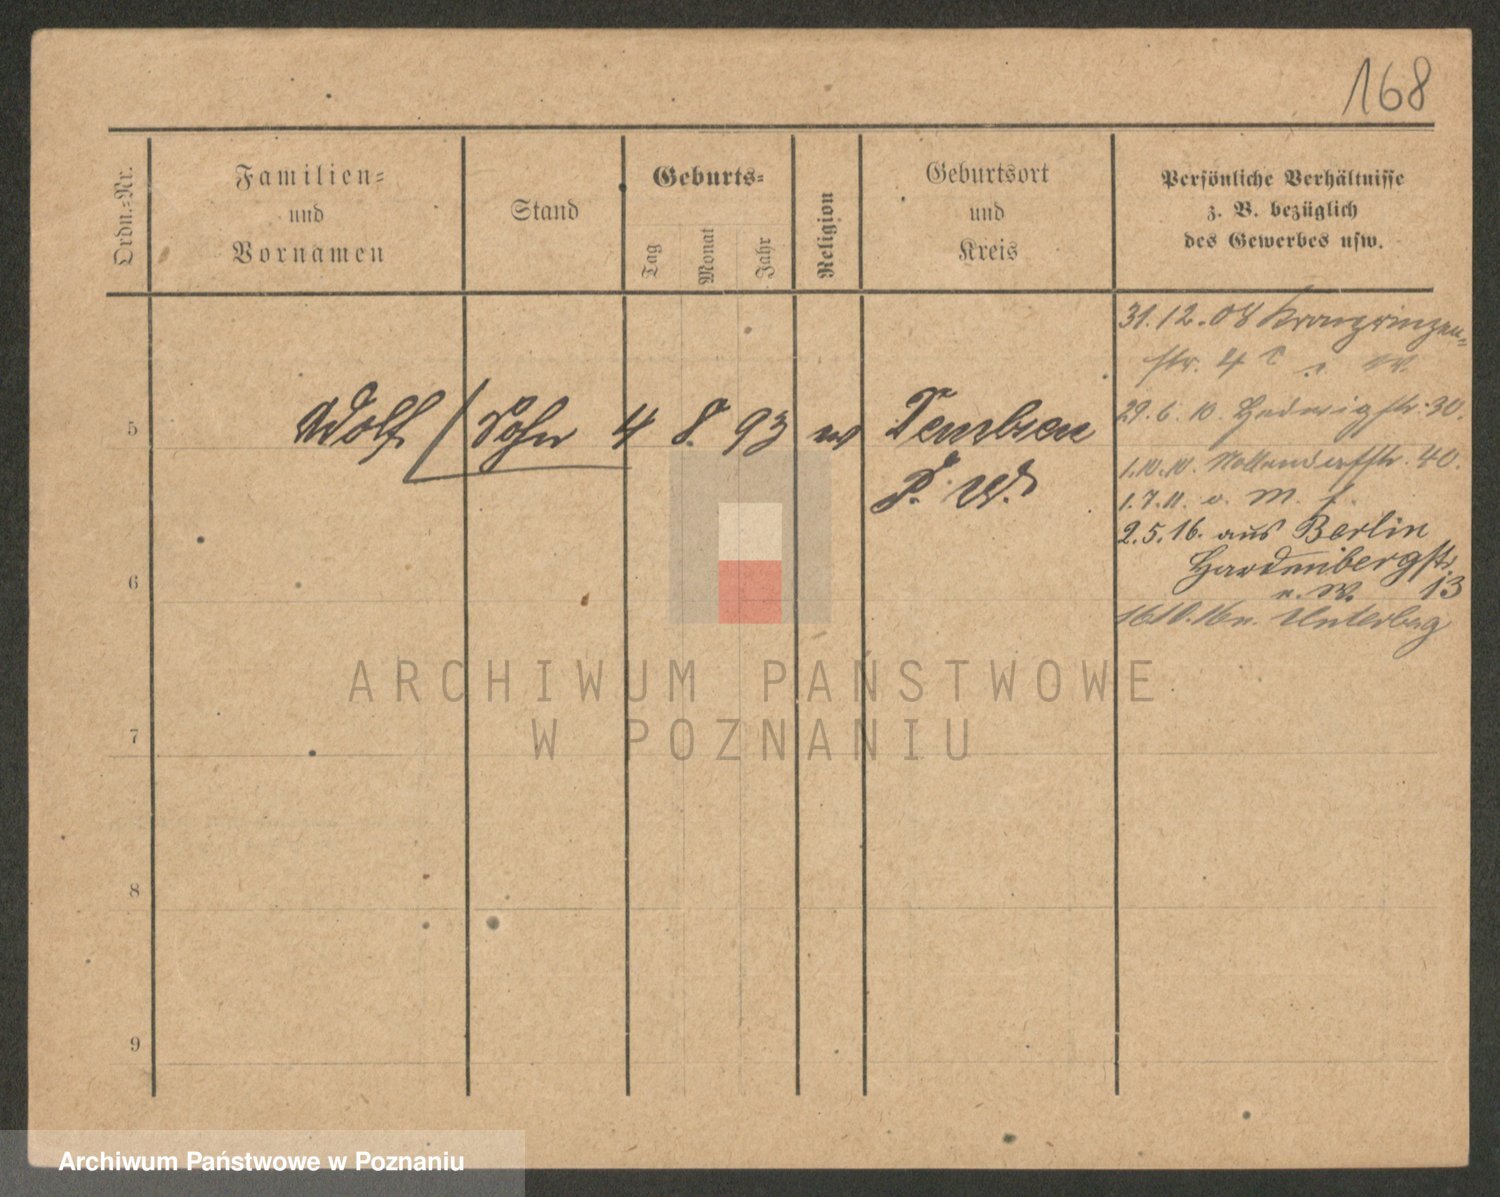 168
Ordn.-Nr.
Familien-
und
Vornamen
Stand
Geburts-
Tag
Monat
Jahr
Religion
Geburtsort
und
Kreis
Persönliche Verhältnisse
z. B. bezüglich
des Gewerbes usw.
31.12.08 Kronprinzen-
str. 4
29.6.10. Hedwigstr. 30.
5 Adolf Sohn 4 8. 93
1.10.10. Nollendorfstr. 40.
1.7.11. v. M.
2.5.16. aus Berlin
Hardenbergstr.
13
6
16.10.16 n. Unterbg
ARCHIWUM PAŃSTWOWE
W POZNANIU
7
8
9
Archiwum Państwowe w Poznaniu